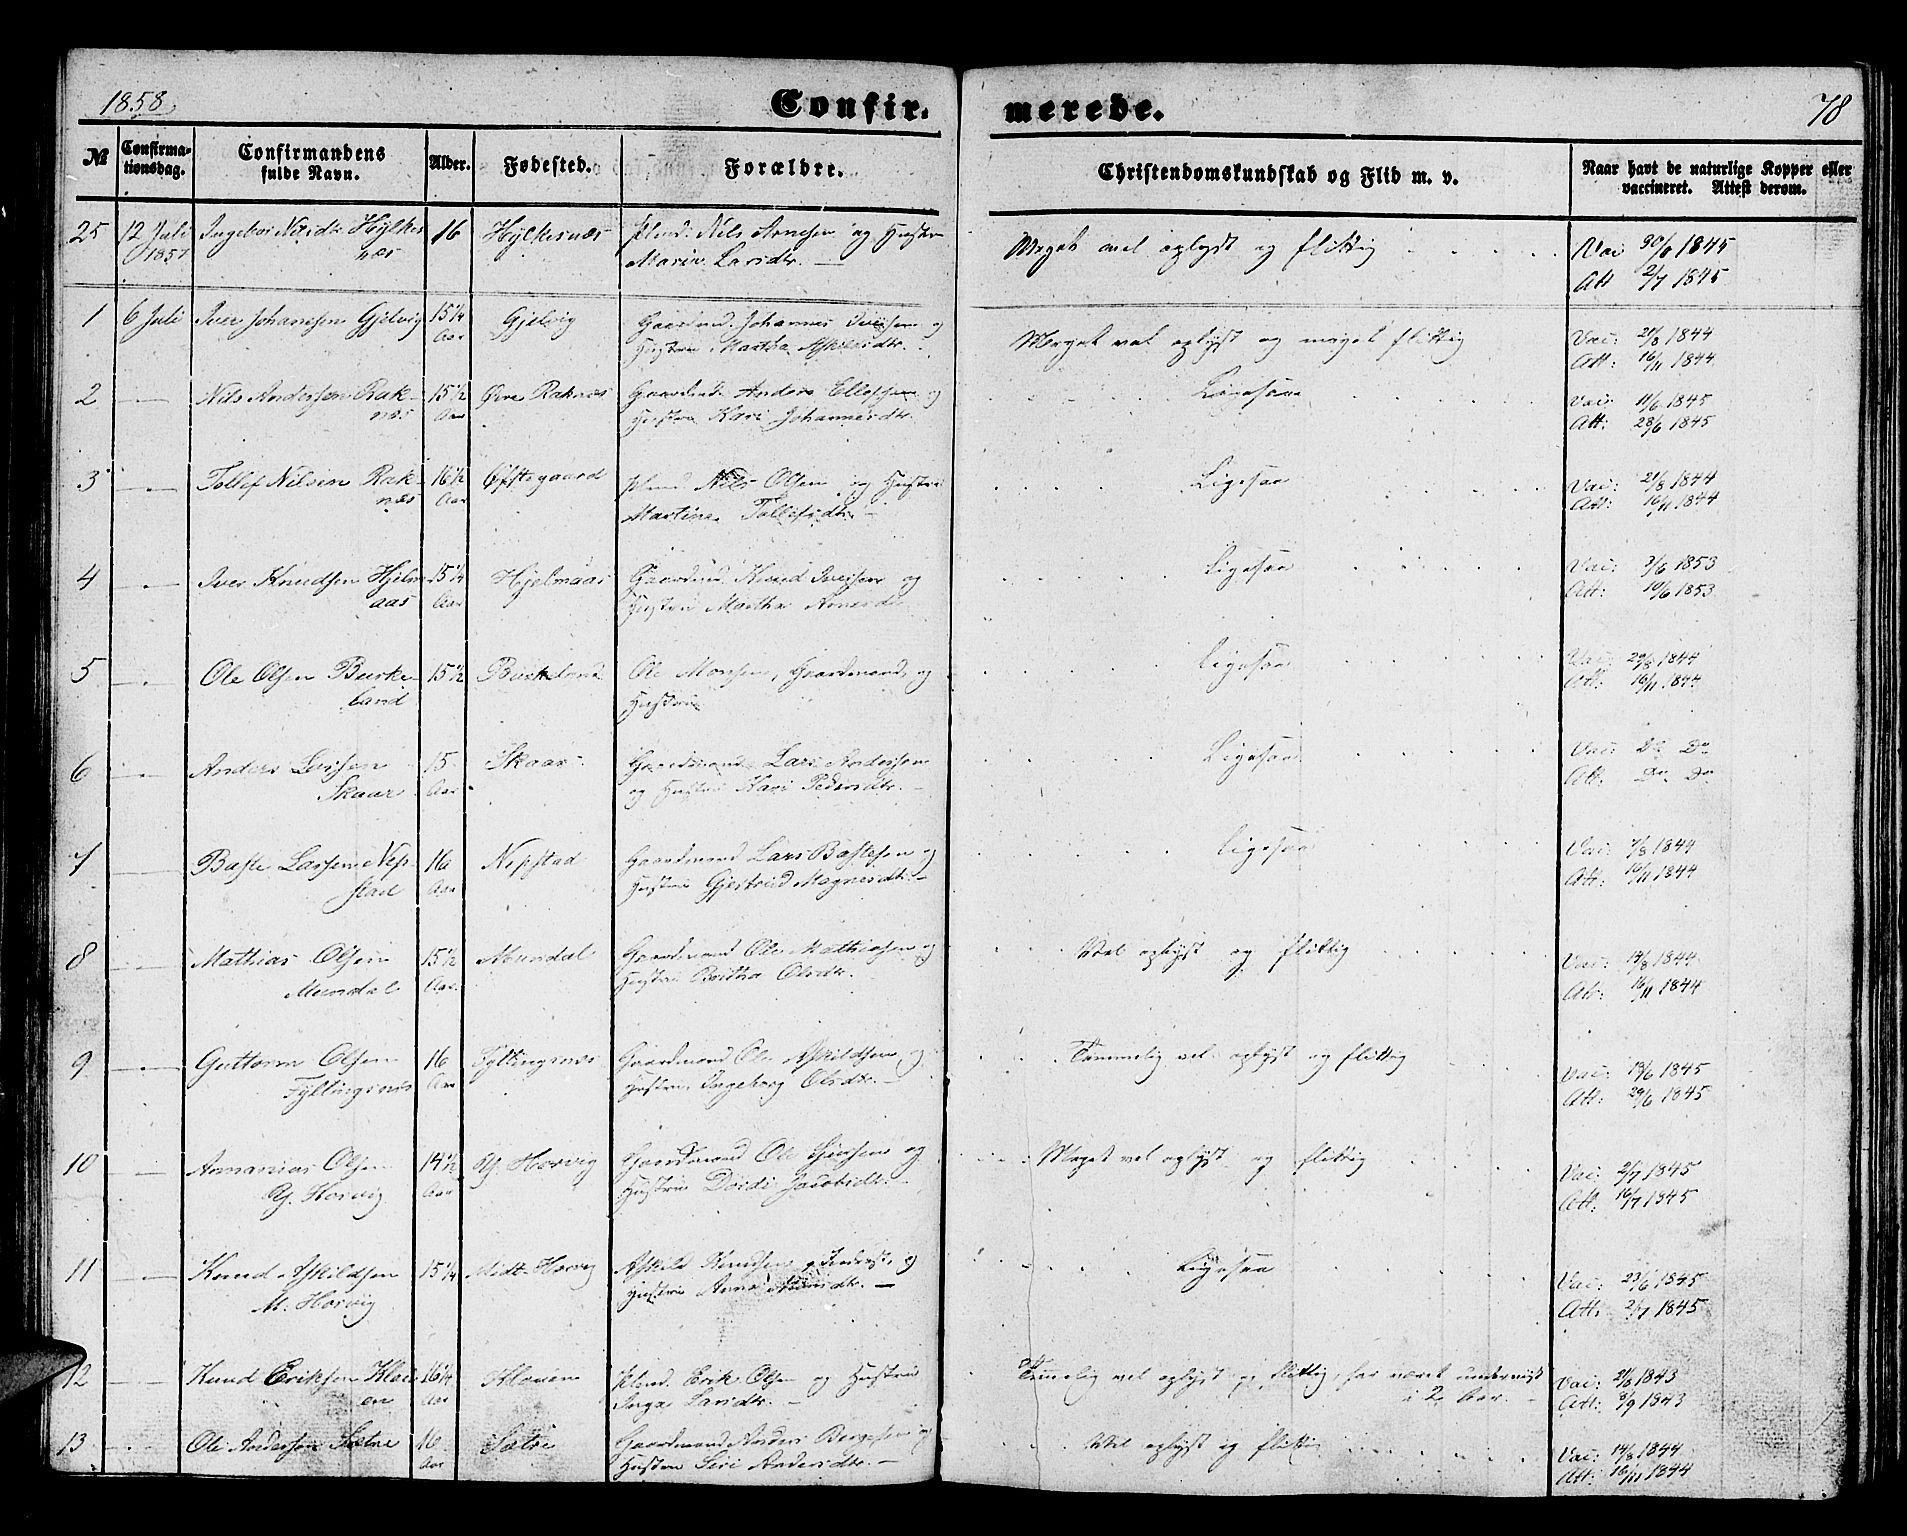 1858.
Confir.
merede.
78
№ Confirmationsdag. Confirmandens fulde Navn. Alder. Fødested. Forældre. Christendomskundskab og Flid m. v. Naar havt de naturlige Kopper eller vaccineret. Attest derom.
25 12 Juli Hylkes 16 Hylkesnæs Nils Arnesen og Hustru Meget vel oplyst og flittig Vac 1845
1857 næs Larsdtr. — Att 2/7 1845
1 6 Juli Iver Johanesen Gjelvig 15 1/4 Gjelvig Gaardmd. Johannes Iversen og Meget vel oplyst og meget flittig Vac: 21/8 1844
Aar Hustru Martha Askeldtr. Att: 16/11 1844
2 — Nils Andersen Rak- 15 1/2 Øvre Raknæs Gaardmd. Anders Ellefsen og Ligesaa Vac: 11/6 1845
næs Aar Hustru Kari Johannesdtr. Att: 28/6 1845
3 — Tollef Nilsen Rak- 16 1/2 Øfstegaard Nils Olsen og Hustru Ligesaa Vac: 21/8 1844
næs Aar Tollefsdtr. — Att: 16/11 1844
4 — Iver Knudsen Hjelm 15 1/4 Hjelmaas Gaardmd. Knud Iversen og Ligesaa Vac: 3/6 1853
aas Aar Hustru Martha Arnesdtr. Att: 10/6 1853
5 — Ole Olsen Birke- 15 1/2 Birkeland Ole Monsen, Gaardmand, og Ligesaa Vac: 29/8 1844
land Hustru Att: 16/11 1844
6 — Anders Larsen 15 Skaar Gaardmand Lars Andersen Ligesaa Vac: Do Do
Skaar Aar og Hustru Kari Pedersdtr. — Att: Do Do
7 — Baste Larsen Nep- 16 Nepstad Gaardmand Lars Bastesen og Ligesaa Vac: 7/8 1844
stad Aar Hustru Gjertrud Magnesdtr. — Att: 16/11 1844
8 — Mathias Olsen 15 1/2 Mundal Gaardmand Ole Mathiasen og Vel oplyst og flittig Vac: 14/8 1844
Mundal Aar Hustru Olsdtr. Att: 16/11 1844
9 — Guttorm Olsen 16 Fyllingsnæs Gaardmand Ole Askildsen og Temmelig vel oplyst og flittig Vac: 19/6 1845
Fyllingsnæs Aar Hustru Ingeborg Olsdtr. — Att: 29/6 1845
10 — Annanias Olsen 14 1/2 Y. Horvig Gaardmand Ole og Meget vel oplyst og flittig Vac: 2/7 1845
Y. Horvig Aar Hustru Dordi Jacobsdtr. Att: 16/7 1845
11 — Knud Askildsen 15 1/4 Midt-Horvig Askild Knudsen, Inderst, og Ligesaa Vac: 23/6 1845
M. Horvig Hustru Anna — Att: 2/7 1845
12 — Knud Eriksen Klou- 16 1/4 Klouen Erik Olsen og Hustru Temelig vel oplyst og flittig, har været undervist Vac: 21/8 1843
en Aar Inga Larsdtr. — i 2 Aar. Att: 8/9 1843
13 — Ole Andersen Sætre 16 Sætre Gaardmand Anders Bergesen og Vel oplyst og flittig Vac: 14/8 1844
Aar Hustru Siri Andersdtr. — Att: 16/11 1844